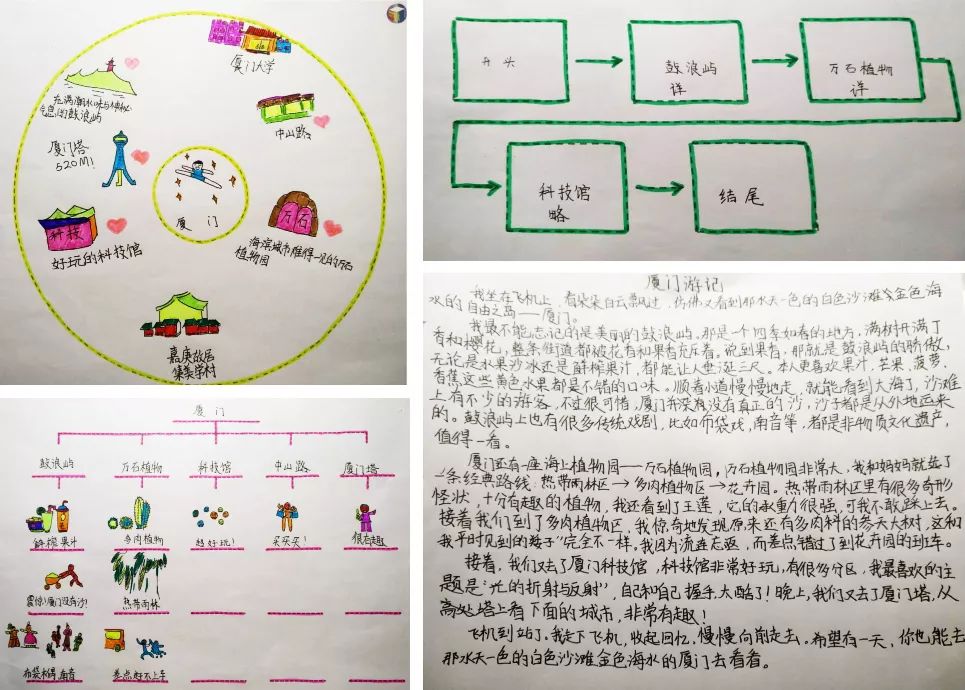 厦门大学
中山路
充满潮水味与神秘
气息的鼓浪屿
厦门塔
520M!
厦门
万石
海滨城市难得一见的万石
植物园
科技
好玩的科技馆
嘉庚故居
集美学村
开头
鼓浪屿
详
万石植物
详
科技馆
略
结尾
厦门
鼓浪屿
万石植物
科技馆
中山路
厦门塔
鲜榨果汁
多肉植物
超好玩!
买买买!
很有趣
震惊!厦门没有沙!
热带雨林
布袋木偶,南音
差点赶不上车
厦门游记
我坐在飞机上,看朵朵白云飘过,仿佛又看到那水天一色的白色沙滩金色海
水的自由之岛——厦门。
我最不能忘记的是美丽的鼓浪屿。那是一个四季如春的地方,满树开满了
香和樱花,整条街道都被花香和果香充斥着。说到果香,那就是鼓浪屿的骄傲,
无论是水果沙冰还是鲜榨果汁,都能让人垂涎三尺。本人更喜欢果汁,芒果、菠萝、
香蕉这些黄色水果都是不错的口味。顺着小道慢慢地走,就能看到大海了,沙滩
上有不少的游客,不过很可惜,厦门并没有真正的沙,沙子都是从外地运来
的。鼓浪屿上也有很多传统戏剧,比如布袋戏,南音等,都是非物质文化遗产,
值得一看。
厦门还有一座海上植物园——万石植物园,万石植物园非常大,我和妈妈就选了
一条经典路线:热带雨林区→多肉植物区→花卉园。热带雨林区里有很多奇形
怪状,十分有趣的植物,我还看到了王莲,它的承重力很强,可我不敢踩上去。
接着我们到了多肉植物区,我惊奇地发现原来还有多肉科的参天大树,这和
我平时见到的“矮子”完全不一样。我因为流连忘返,而差点错过了到花卉园的班车。
接着,我们又去了厦门科技馆,科技馆非常好玩,有很多分区,我最喜欢的主
题是“光的折射与反射”,自己和自己握手,太酷了!晚上,我们又去了厦门塔,从
高处塔上看下面的城市,非常有趣!
飞机到站了。我走下飞机,收起回忆,慢慢向前走去。希望有一天,你也能去
那水天一色的白色沙滩金色海水的厦门去看看。